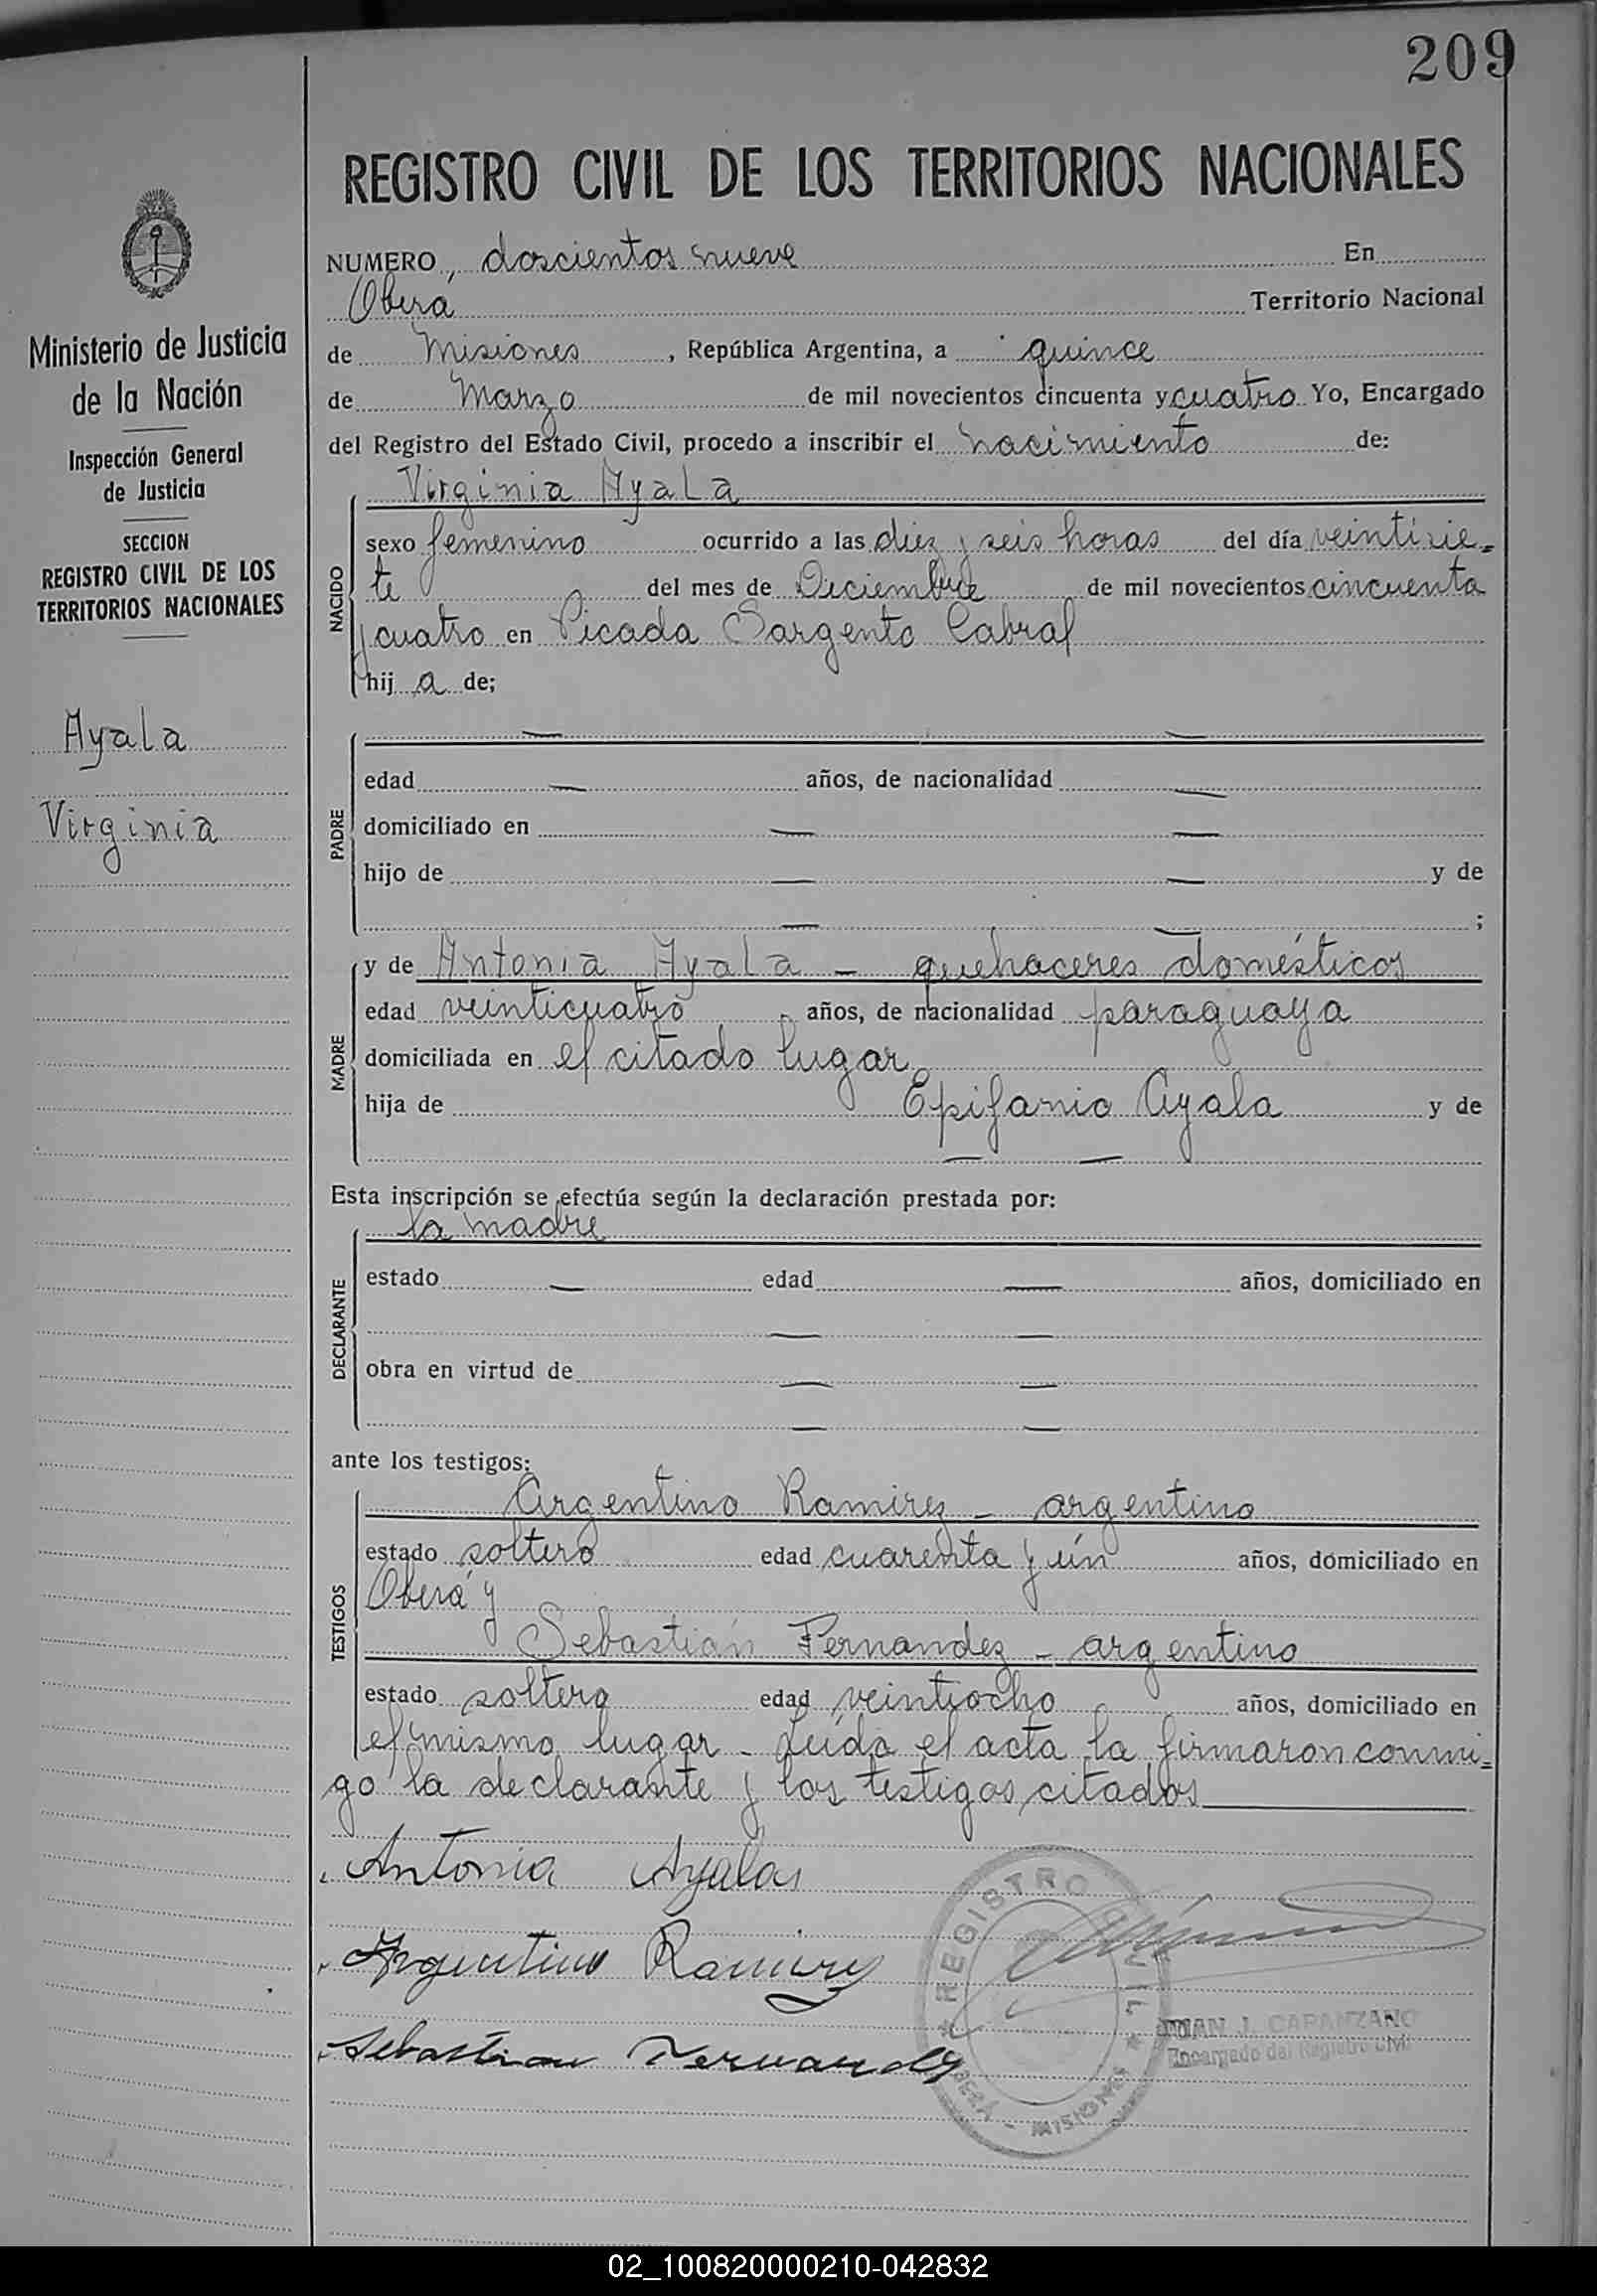 209
REGISTRO CIVIL DE LOS TERRITORIOS NACIONALES
Ministerio de Justicia
de la Nación
Inspección General
de Justicia
SECCION
REGISTRO CIVIL DE LOS
TERRITORIOS NACIONALES
Ayala
Virginia
NUMERO, doscientos nueve En
Oberá Territorio Nacional
de Misiones, República Argentina, a quince
de Marzo de mil novecientos cincuenta y cuatro Yo, Encargado
del Registro del Estado Civil, procedo a inscribir el nacimiento de:
Virginia Ayala
NACIDO
sexo femenino ocurrido a las diez y seis horas del día veintisie=
te del mes de Diciembre de mil novecientos cincuenta
y cuatro en Picada Sargento Cabral
hij a de;
PADRE
edad — años, de nacionalidad —
domiciliado en — —
hijo de — — y de
— — ;
MADRE
y de Antonia Ayala - quehaceres domésticos
edad veinticuatro años, de nacionalidad paraguaya
domiciliada en el citado lugar
hija de Epifanio Ayala y de
— —
Esta inscripción se efectúa según la declaración prestada por:
la madre
DECLARANTE
estado — edad — años, domiciliado en
— —
obra en virtud de — —
— —
ante los testigos:
Argentino Ramirez - argentino
TESTIGOS
estado soltero edad cuarenta y ún años, domiciliado en
Oberá y
Sebastián Fernandez - argentino
estado soltero edad veintiocho años, domiciliado en
el mismo lugar - Leída el acta la firmaron conmi=
go la declarante y los testigos citados
Antonia Ayala
Argentino Ramirez
Sebastian Fernandez
REGISTRO CIVIL
OBERÁ - MISIONES
JUAN J. CAPANZANO
Encargado del Registro Civil
02_100820000210-042832